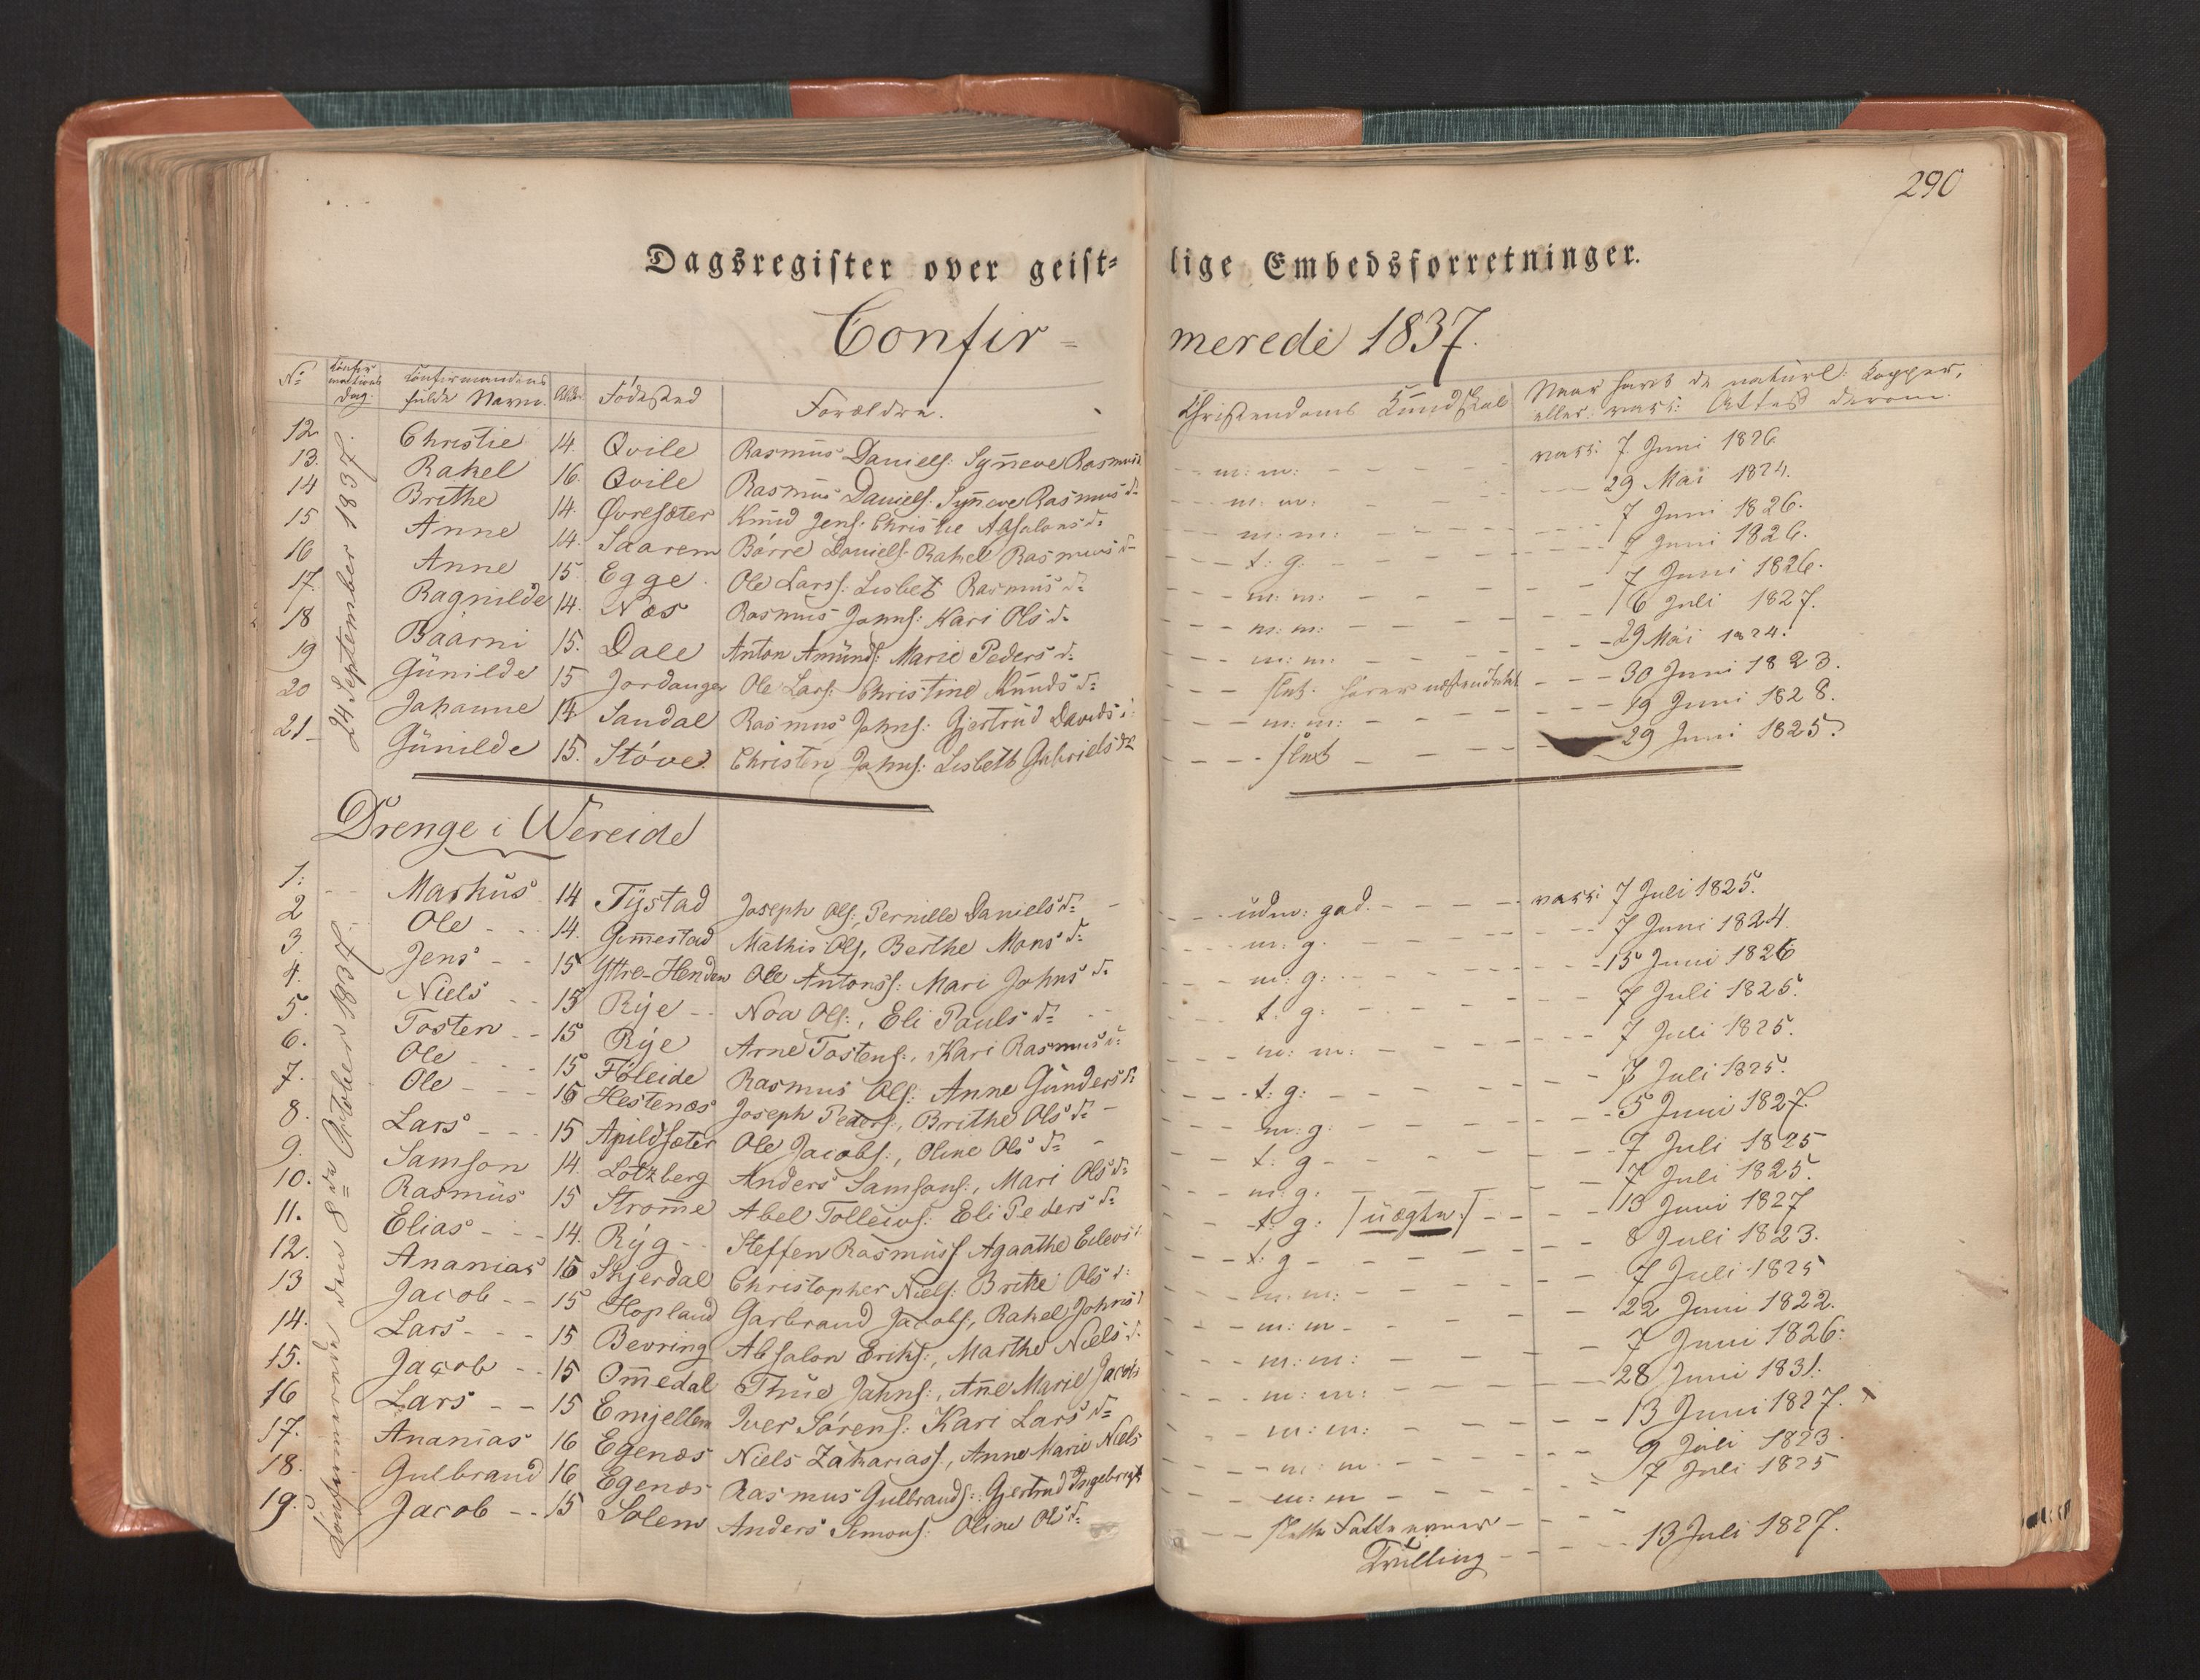 290
Dagsregister over geist- lige Embedsforretninger.
Confir- merede 1837.
No Confirmations Dag. Confirmandens fulde Navn. Alder Födested Forældre. Christendoms Kundskab Naar havt de naturl: Kopper, eller vacc: Attest derom.
24 September 1837.
12 Christie 14. Qvile Rasmus Daniels: Syneve Rasmusd m: m: vacc: 7 Juni 1826
13. Rakel 16. Qvile Rasmus Daniels: Syneve Rasmusd: m: m: 29 Mai 1824.
14 Brithe 14. Qvresæter Knud Jens: Christie Absalonsd: m: m: 7 Juni 1826.
15 Anne 14. Saarem Börre Daniels: Rakel Rasmusd: t: g: 7 Juni 1826.
16 Anne 15. Egge Ole Larss: Lisbet Rasmusd: m: m: 7 Juni 1826.
17. Ragnilde 14. Næs Rasmus Johns: Kari Olsd: m: m: 16 Juli 1827.
18 Baarni 15. Dale Anton Amunds: Marie Pedersd: m: m: 29 Mai 1824.
19 Günilde 15 Jordanger Ole Lars: Christine Knudsd: slet. 30 Juni 1823.
20 Johanne 14. Sandal Rasmus Johns: Gjertrud Davidsd: m: m: 19 Juni 1828.
21 Günilde 15. Stöve. Christen Johns: Lisbeth Gabrielsd: slet 29 Juni 1825.
Drenge i Wereide
Confirmerede den 8de October 1837.
1: Markus 14 Tystad Joseph Ols: Pernille Danielsd: udm: god. vacc: 7 Juli 1825.
2 Ole 14. Gimestad Mathis Ols, Berthe Monsd: m: g. 7 Juni 1824.
3. Jens 15 Ytre-Henden Ole Antonss: Mari Johnsd: m: g: 15 Juni 1826
4. Niels 15 Rye Noa Ols:, Eli Paulsd: t: g: 7 Juli 1825.
5. Tosten 15 Rye Arne Tostens:, Kari Rasmusd: m: m: 7 Juli 1825.
6. Ole 15 Föleide Rasmus Ols: Anne Gundersd: t: g: 7 Juli 1825.
7. Ole 16 Hestenæs Joseph Peders:, Brithe Olsd: m: g: 5 Juni 1827.
8. Lars 15 Apildsæter Ole Jacobs:, Oline Olsd: t: g 7 Juli 1825
9. Samson 14. Lotzberg Anders Samsons:, Mari Olsd: m: g: 7 Juli 1825.
10. Rasmus 15 Strome Abel Tollevs: Eli Pedersd: t: g: /uægte./ 13 Juni 1827
11. Elias 14. Ryg Steffen Rasmuss Agaathe Eilevsd: t: g 8 Juli 1823.
12. Ananias 16 Skjerdal Christopher Niels: Brithe Olsd: m: m: 7 Juli 1825
13 Jacob 15 Hopland Garbrand Jacobs, Rakel Johnsd m: m 22 Juni 1822.
14. Lars 15 Bevring Absalon Eriks:, Marthe Nielsd: m: m: 7 Juni 1826:
15. Jacob 15 Omedal Thue Johns:, Ane Marie Jacobs m: m: 28 Juni 1831.
16 Lars 15 Emjellem Iver Sörens: Kari Larsd: m: m: 13 Juni 1827.
17. Ananias 16 Egenæs Niels Zakarias:, Anne Marie Niels m: m 9 Juli 1823
18. Gulbrand 16 Egenæs Rasmus Gulbrands: Gjertrud Ingebrigts m: m 7 Juli 1825
19. Jacob 15 Solem Anders Simons: Oline Olsd: slette Fatteevner 13 Juli 1827.
Trulling